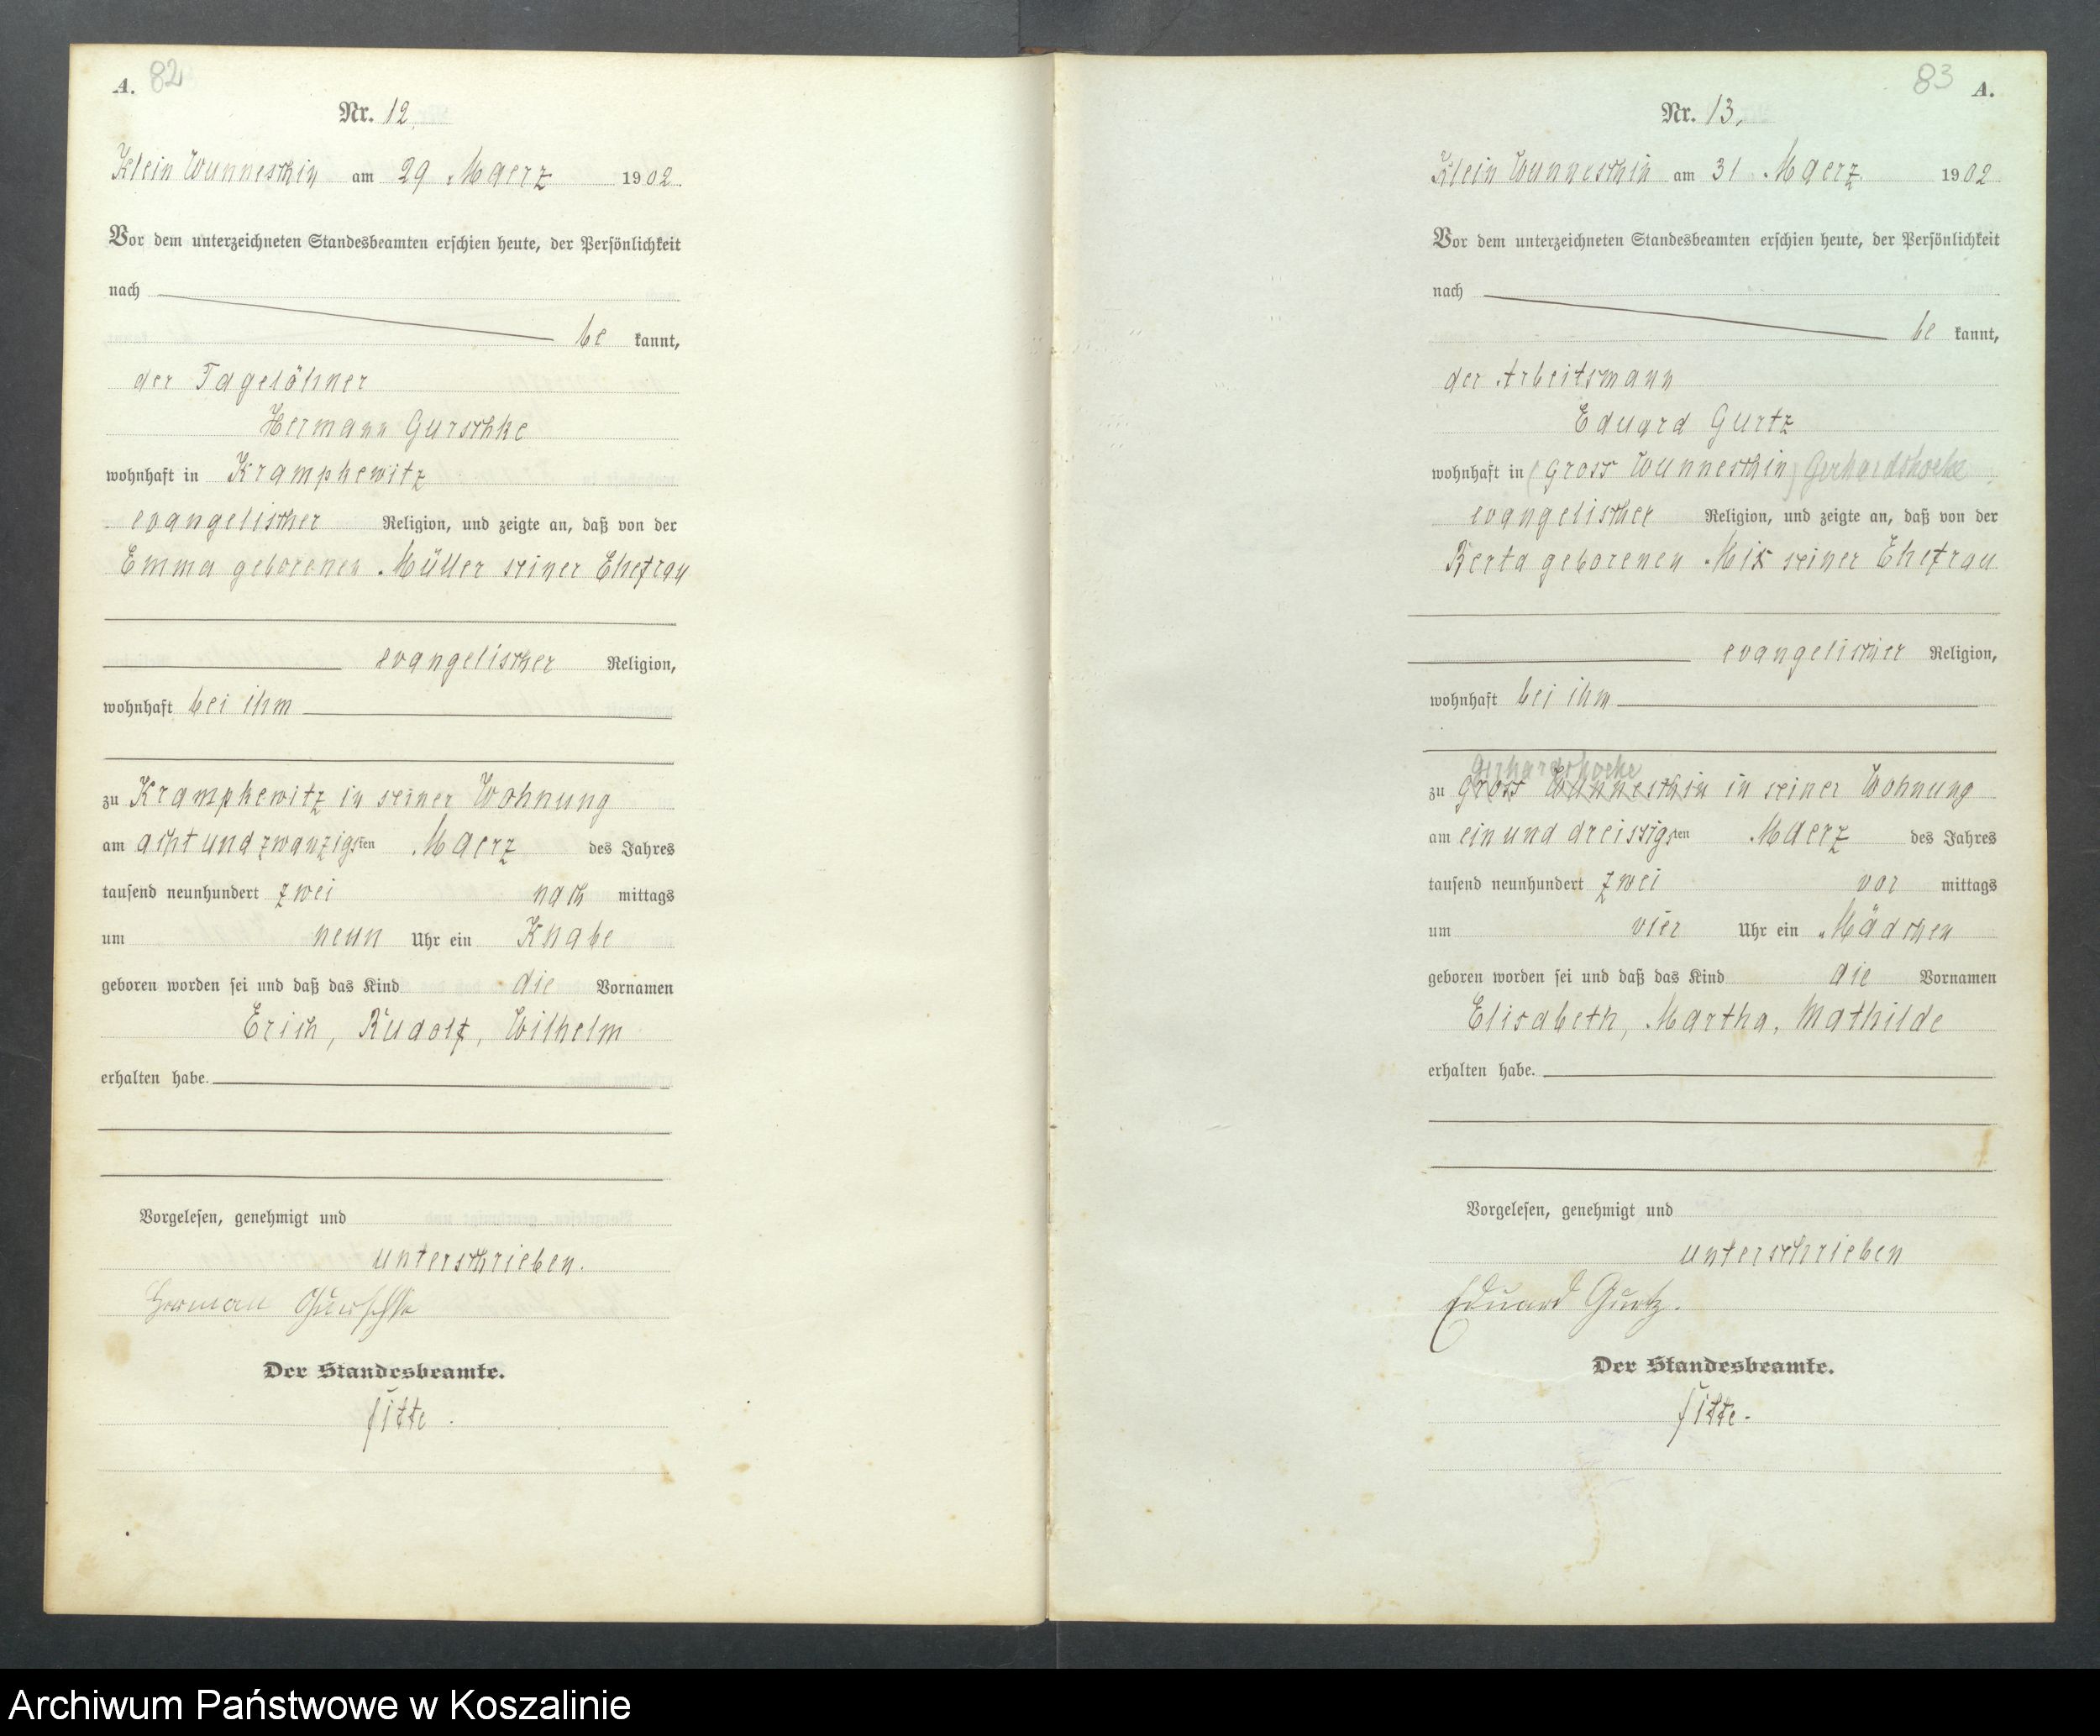 A. 82
Nr. 12
Klein Wunneschin am 29 Maerz 1902.
Vor dem unterzeichneten Standesbeamten erschien heute, der Persönlichkeit
nach
be kannt,
der Tagelöhner
Hermann Gurschke
wohnhaft in Krampkewitz
evangelischer Religion, und zeigte an, daß von der
Emma geborenen Müller seiner Ehefrau
evangelischer Religion,
wohnhaft bei ihm
zu Krampkewitz in seiner Wohnung
am acht und zwanzigsten Maerz des Jahres
tausend neunhundert zwei nach mittags
um neun Uhr ein Knabe
geboren worden sei und daß das Kind die Vornamen
Erich, Rudolf, Wilhelm
erhalten habe.
Vorgelesen, genehmigt und
unterschrieben.
Herman Gurschke
Der Standesbeamte.
83 A.
Nr. 13.
Klein Wunneschin am 31 Maerz 1902
Vor dem unterzeichneten Standesbeamten erschien heute, der Persönlichkeit
nach
be kannt,
der Arbeitsmann
Eduard Gurtz
wohnhaft in (Gross Wunneschin) Gerhardshoehe
evangelischer Religion, und zeigte an, daß von der
Berta geborenen Mix seiner Ehefrau
evangelischer Religion,
wohnhaft bei ihm
Gerhardshoehe
zu Gross Wunneschin in seiner Wohnung
am ein und dreissigsten Maerz des Jahres
tausend neunhundert zwei vor mittags
um vier Uhr ein Mädchen
geboren worden sei und daß das Kind die Vornamen
Elisabeth, Martha, Mathilde
erhalten habe.
Vorgelesen, genehmigt und
unterschrieben
Eduard Gurtz.
Der Standesbeamte.
Archiwum Państwowe w Koszalinie